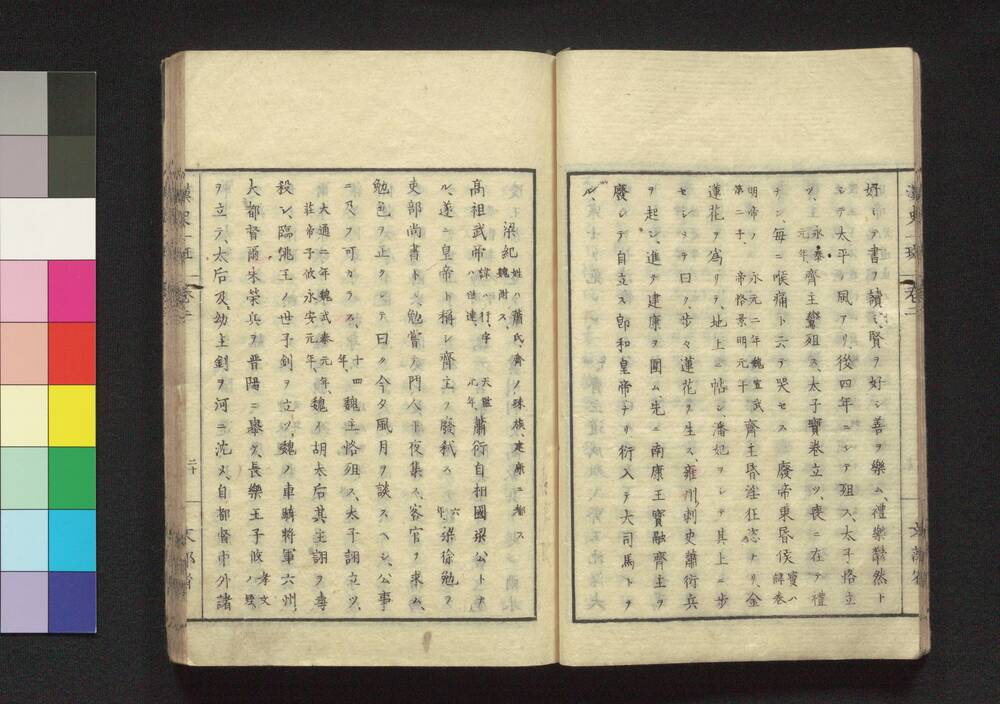 好ンテ書ヲ讀ミ、賢ヲ好シ善ヲ樂ム、禮樂鬱然ト
シテ太平ノ風アリ、後四年ニシテ殂ス、太子恪立
ツ、永泰元年、齊主鸞殂ス、太子寶卷立ツ、喪ニ在テ禮
ナシ、毎ニ喉痛ト云テ哭セス 廢帝東昏侯
明帝ノ第二子、永元二年魏宣武帝恪景明元年 齊主昏淫狂恣ナリ、金
蓮花ヲ爲リテ、地上ニ帖シ潘妃ヲシテ其上ニ歩
セシメテ曰ク、歩々蓮花ヲ生ス、雍州刺史蕭衍兵
ヲ起シ、進テ建康ヲ圍ム先ニ南康王寶融齊主ヲ
廢シテ自立ス即和皇帝ナリ衍入テ大司馬トナ
ル、
梁紀 姓ハ蕭氏、齊ノ疎族、建康ニ都ス 魏附ス、
高祖武帝 諱ハ衍、字ハ叔達、 天監元年、蕭衍自相國梁公トナ
ル、遂ニ皇帝ト稱シ齊主ヲ廢弑ス 六年、梁徐勉ヲ
吏部尚書トス、勉嘗テ門人ト夜集ス、客官ヲ求ム、
勉色ヲ正クシテ曰ク今夕風月ヲ談スヘシ、公事
ニ及フ可カラス、十四年、魏主恪殂ス、太子詡立ツ、
大通二年魏武泰元年、莊帝子攸永安元年、魏ノ胡太后其主詡ヲ毒
殺シ、臨佻王ノ世子釗ヲ立ツ、魏ノ車騎將軍六州
大都督爾朱榮兵ヲ晋陽ニ擧ク、長樂王子攸 孝文ノ姪
ヲ立テ、太后及、幼主釗ヲ河ニ沈メ、自都督中外諸
二十
文部省